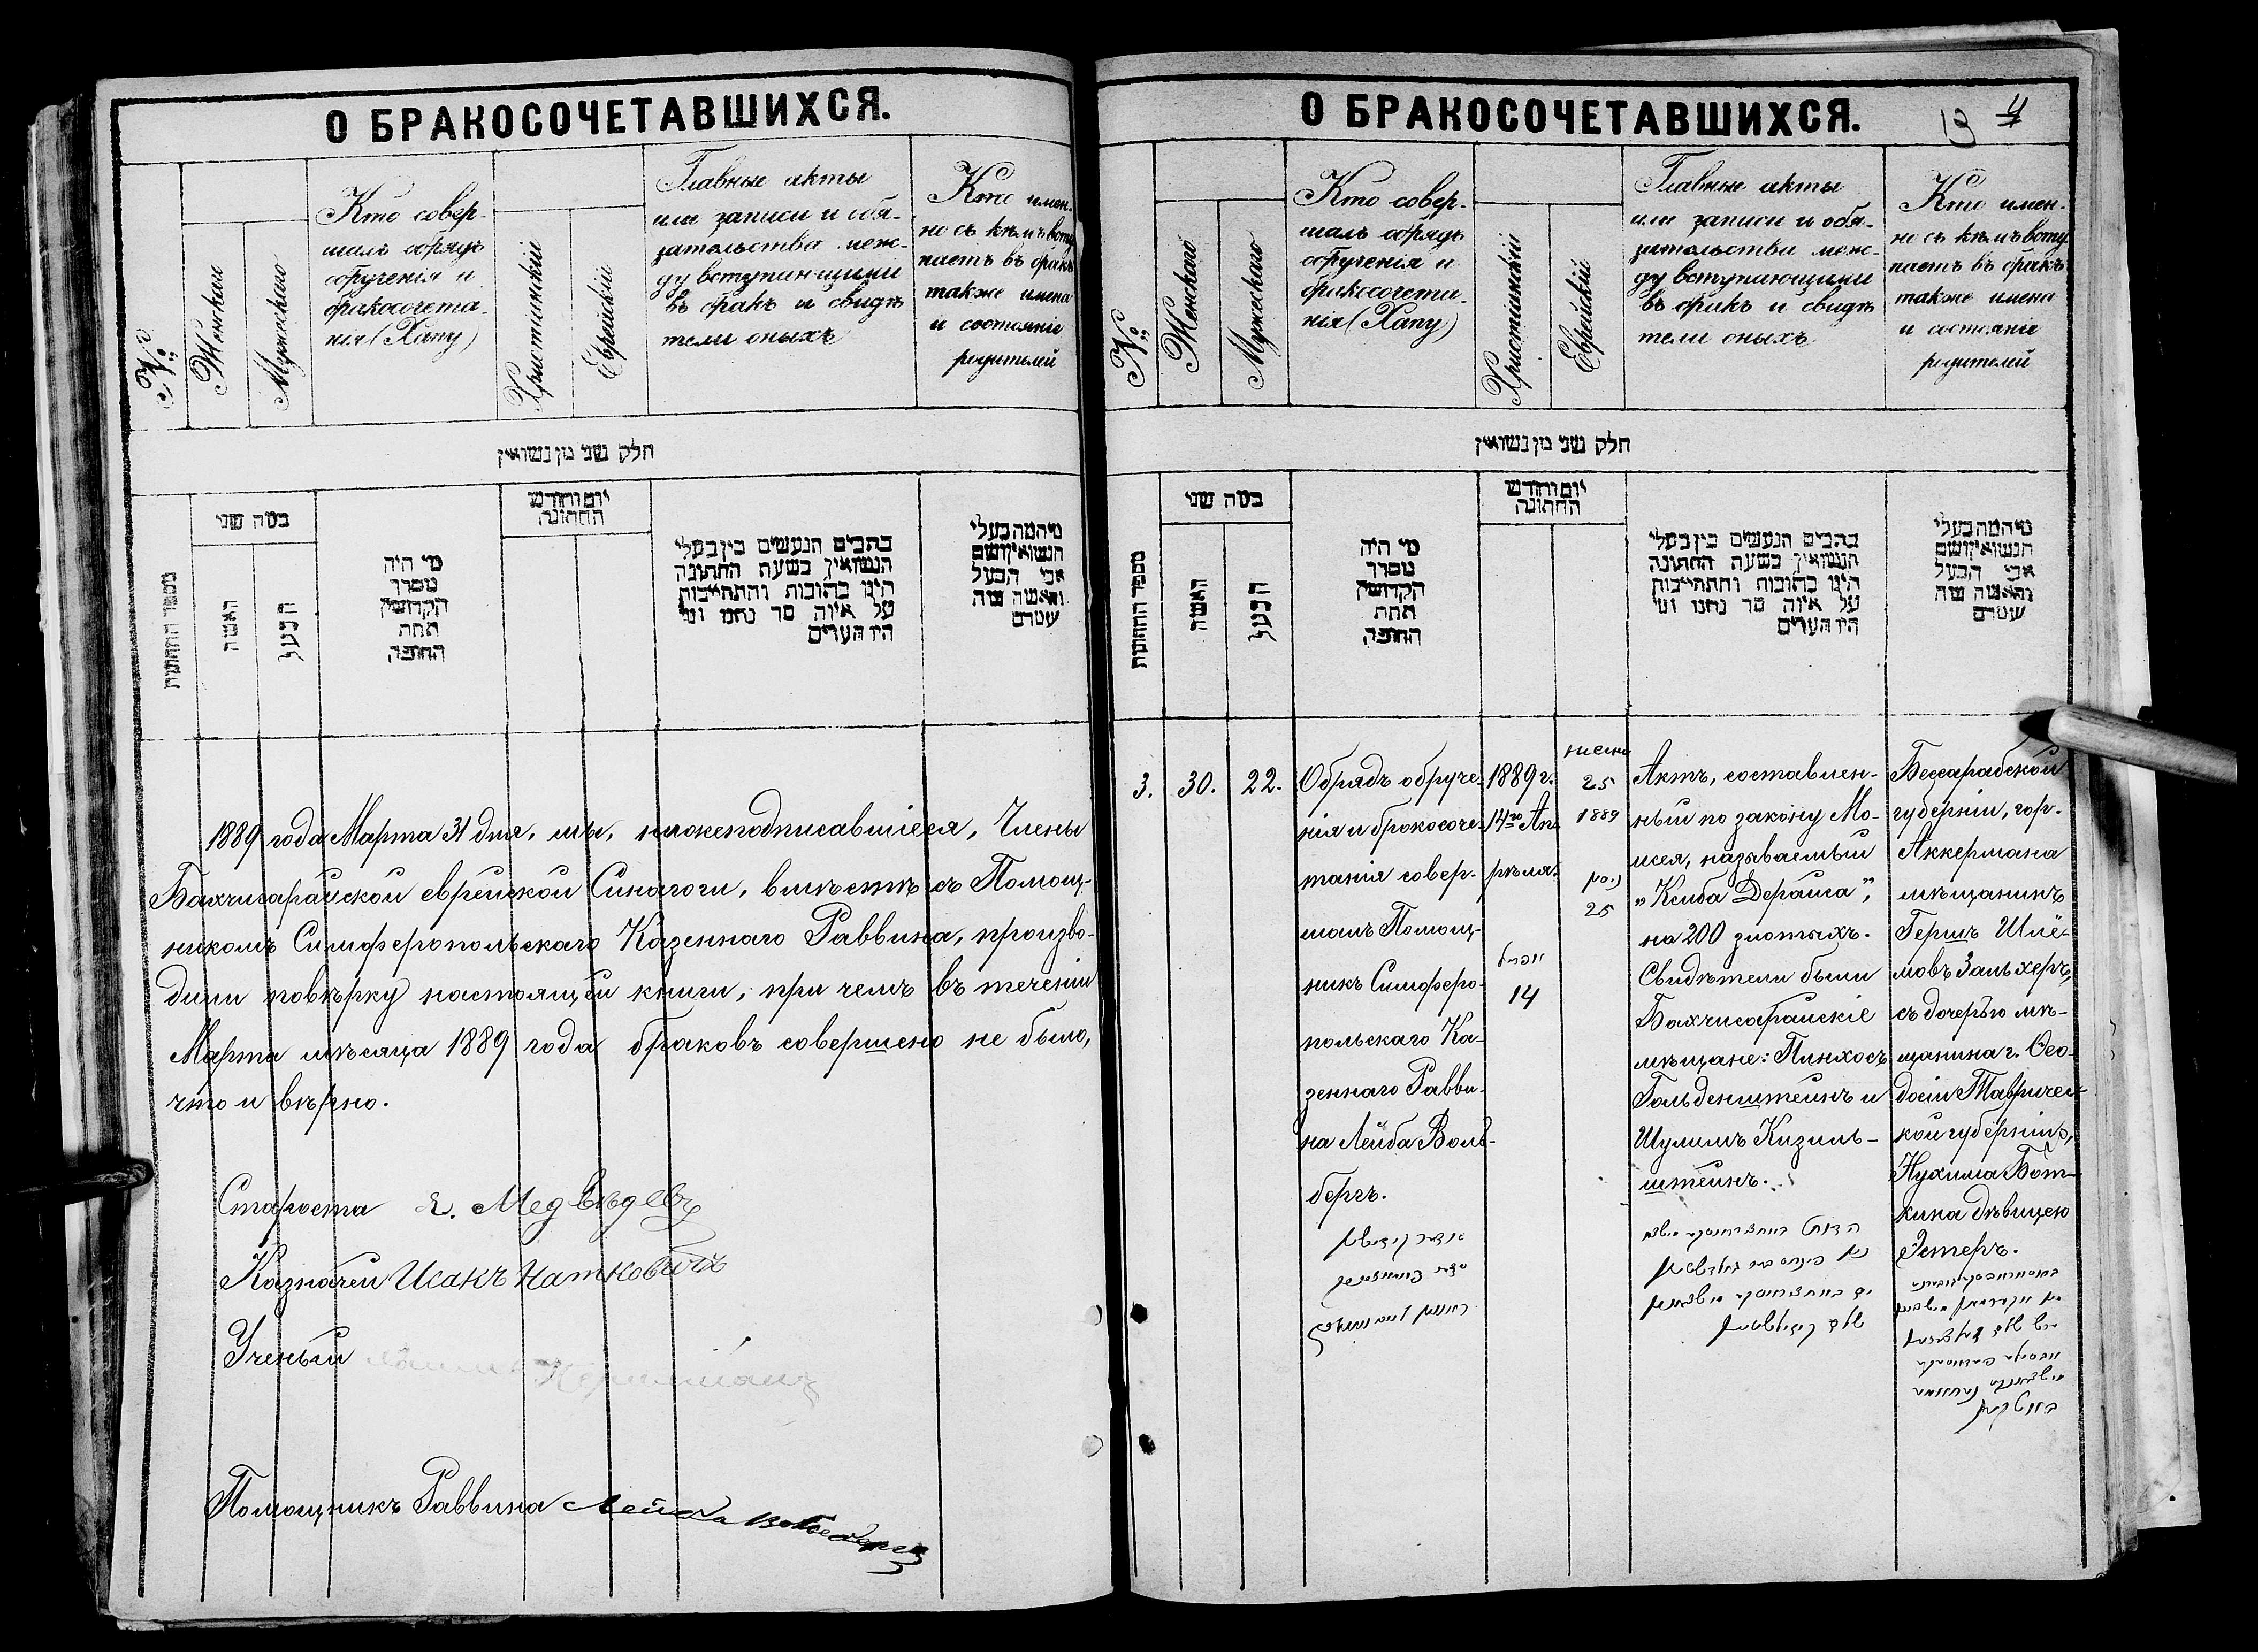 О БРАКОСОЧЕТАВШИХСЯ.
№
Женскаго
Мужескаго
Кто совер-
шалъ обрядъ
обрученія и
бракосочета-
нія (Хапу)
Христіанскій
Еврейскій
Главные акты
или записи и обя-
зательства меж-
ду вступающими
въ бракъ и свидѣ
тели оныхъ
Кто имен-
но съ кѣмъ всту
паетъ въ бракъ
также имена
и состояніе
родителей
חלק שני מן נשואין
מספר החתונות
כמה שני
האשה
הבעל
מי היה
מסדר
הקדושין
תחת
החופה
יום וחודש
החתונה
כתבים הנעשים בין בעלי
הנשואין בשעת החתונה
היינו כתובות והתחייבות
על איזה סך נתנו ומי
היו העדים
מי המה בעלי
הנשואין ושם
אבי הבעל
והאשה ומה
עטרם
1889 года Марта 31 дня, мы, нижеподписавшіеся, Члены
Бахчисарайской еврейской Синагоги, вмѣстѣ съ Помощ-
никомъ Симферопольскаго Казеннаго Раввина, произво-
дили повѣрку настоящей книги, при чемъ въ теченіи
Марта мѣсяца 1889 года браковъ совершено не было,
что и вѣрно.
Староста Медвѣдевъ
Казначей Исакъ Натковичъ
Ученый
Помощникъ Раввина Лейба Вольбергъ
О БРАКОСОЧЕТАВШИХСЯ.
13 4
№
Женскаго
Мужескаго
Кто совер-
шалъ обрядъ
обрученія и
бракосочета-
нія (Хапу)
Христіанскій
Еврейскій
Главные акты
или записи и обя-
зательства меж-
ду вступающими
въ бракъ и свидѣ
тели оныхъ
Кто имен-
но съ кѣмъ всту
паетъ въ бракъ
также имена
и состояніе
родителей
חלק שני מן נשואין
מספר החתונות
כמה שני
האשה
הבעל
מי היה
מסדר
הקדושין
תחת
החופה
יום וחודש
החתונה
כתבים הנעשים בין בעלי
הנשואין בשעת החתונה
היינו כתובות והתחייבות
על איזה סך נתנו ומי
היו העדים
מי המה בעלי
הנשואין ושם
אבי הבעל
והאשה ומה
עטרם
3.
30.
22.
Обрядъ обруче-
нія и бракосоче-
танія совер-
шалъ Помощ-
никъ Симферо-
польскаго Ка-
зеннаго Равви-
на Лейба Воль-
бергъ.
1889 г.
14го Ап-
рѣля.
אפריל
14
нисана
25
1889
ניסן
25
Актъ, составлен-
ный по закону Мо-
исея, называемый
„Ксиба Дераиса“,
на 200 злотыхъ.
Свидѣтели были
Бахчисарайскіе
мѣщане: Пинхосъ
Гольденштейнъ и
Шулимъ Кизиль-
штейнъ.
Бессарабской
губерніи, гор.
Аккермана
мѣщанинъ
Гершъ Шлё-
мовъ Зальхеръ,
съ дочерью мѣ-
щанина г. Ѳео-
досіи Тавричес-
кой губерніи,
Нухима Бот-
кина дѣвицею
Эстеръ.